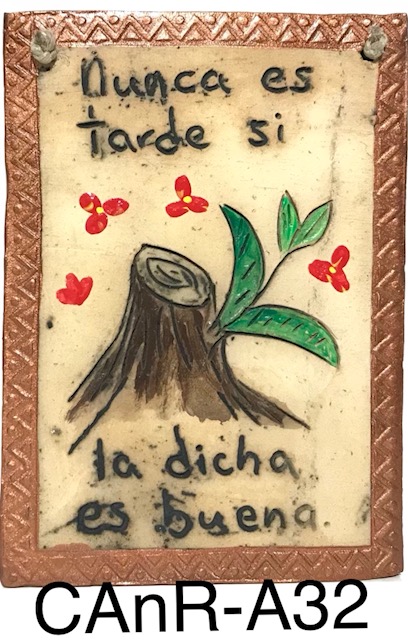 Nunca es
tarde si
la dicha
es buena.
CAnR-A32